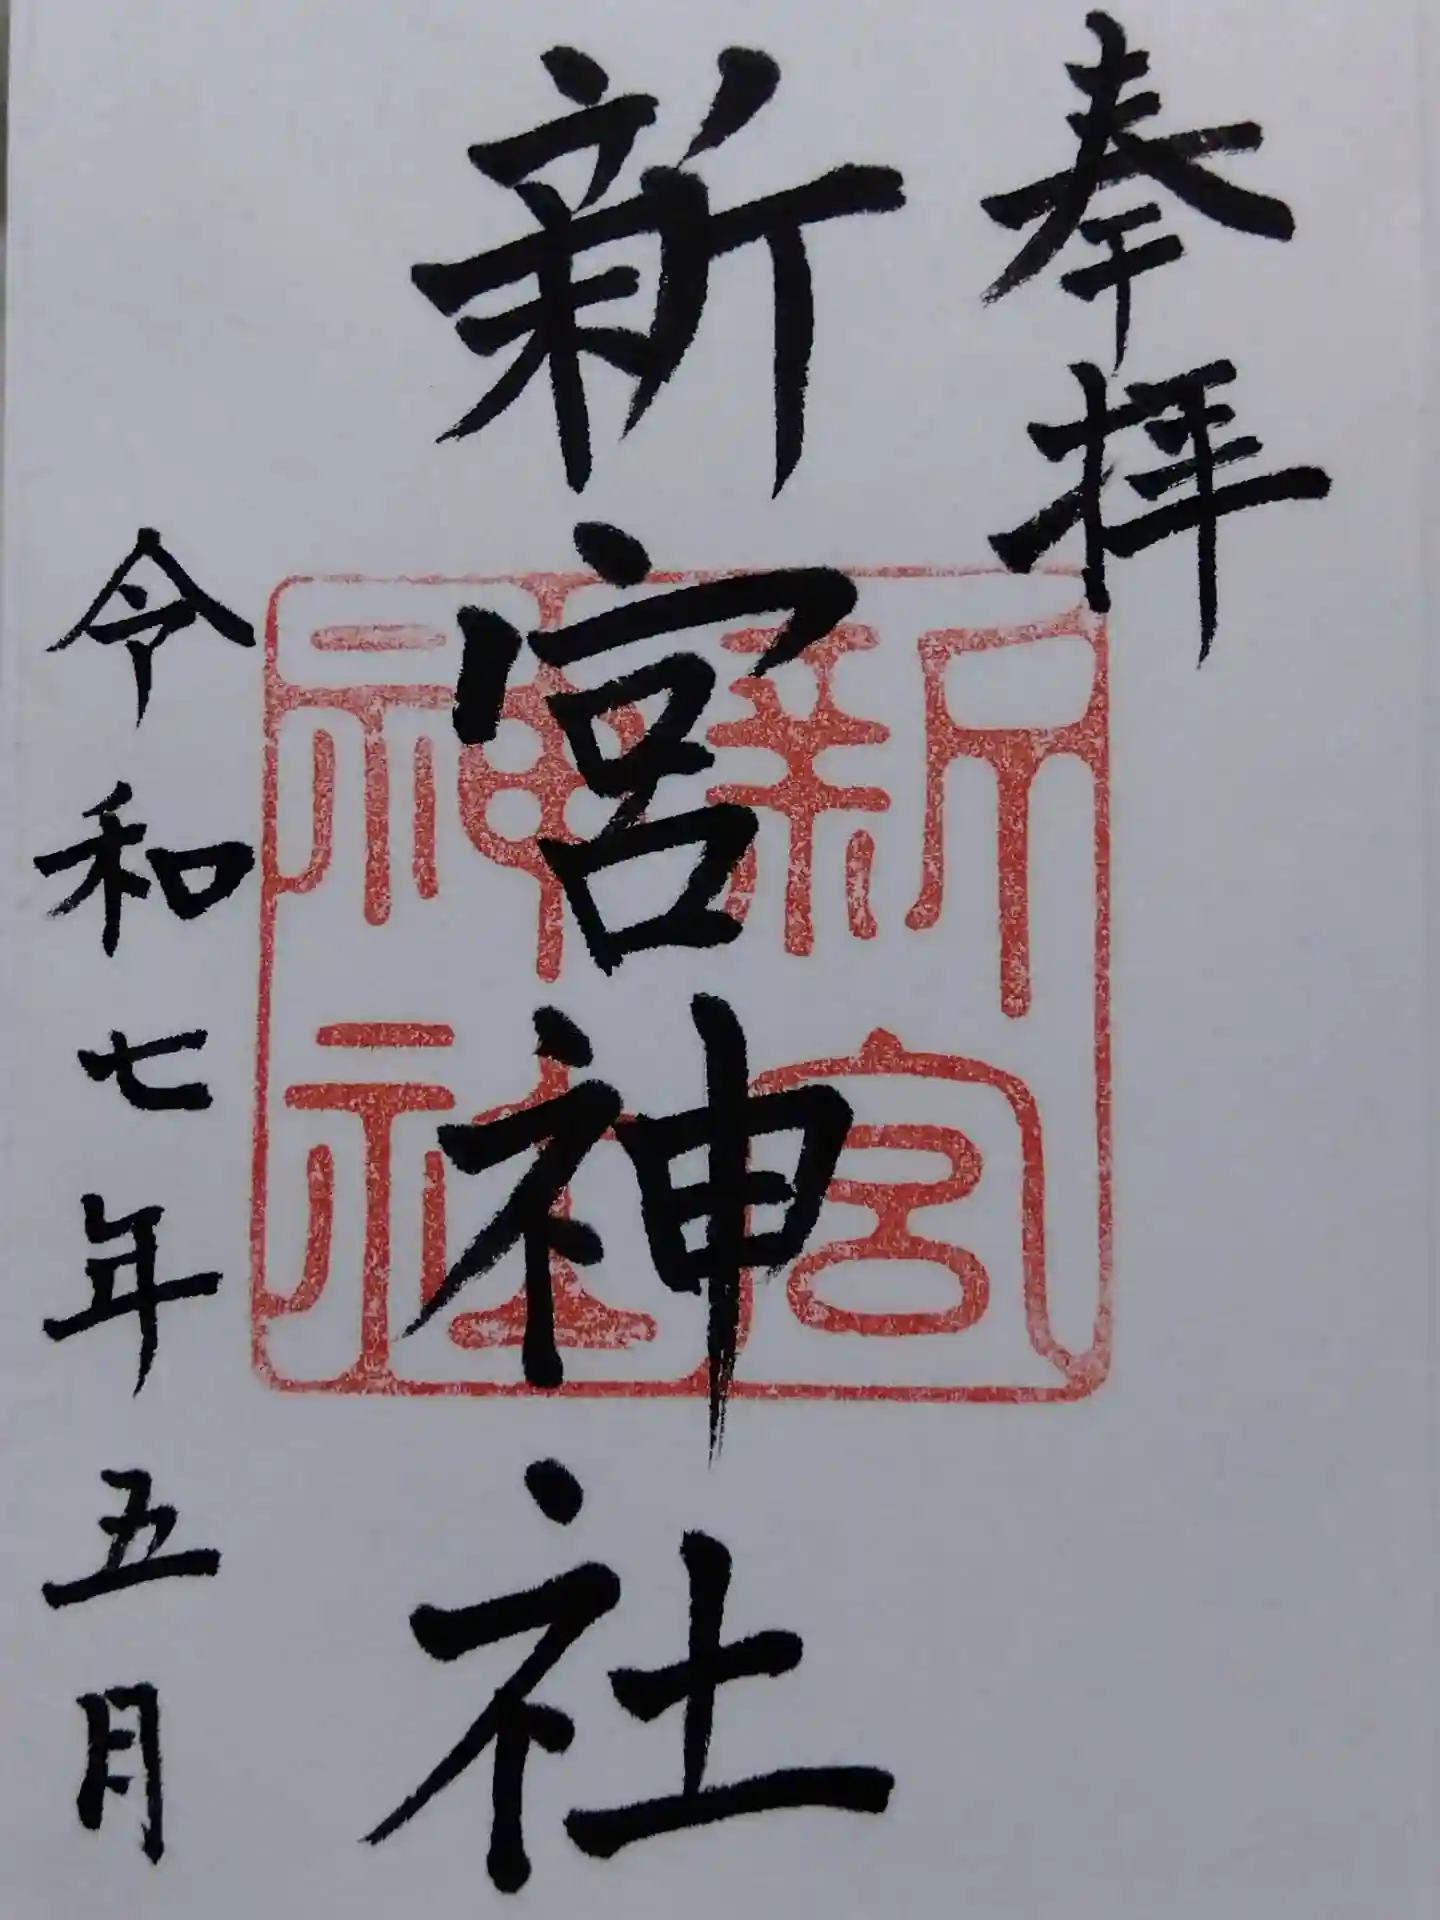 奉拝
新宮神社
新宮
神社
令和七年五月